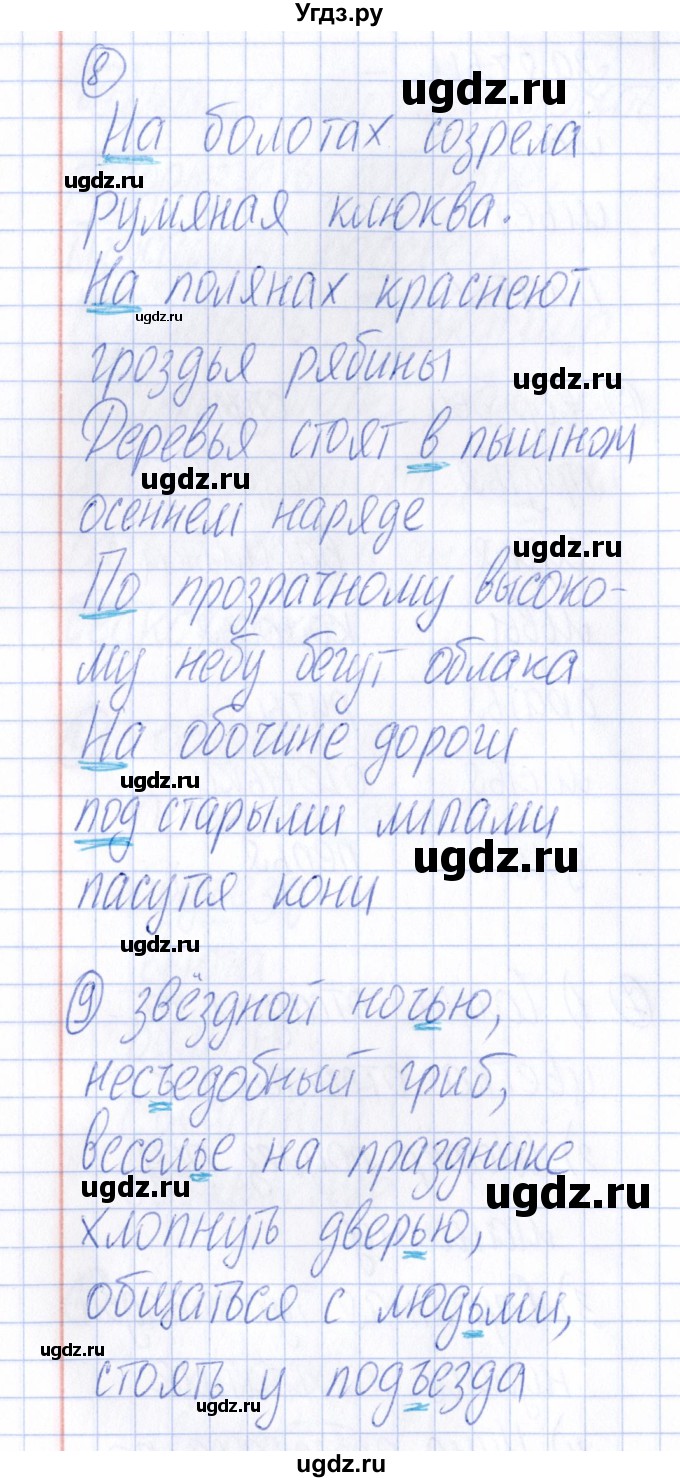 Угдз.ру
8
ugdz.ru
На болотах созрела
ugdz.ru
румяная клюква.
На полянах краснеют
ugdz.ru
гроздья рябины
ugdz.ru
Деревья стоят в пышном
ugdz.ru
осеннем наряде
ugdz.ru
По прозрачному высоко-
му небу бегут облака
На обочине дороги
ugdz.ru
под старыми липами
ugdz.ru
пасутся кони
ugdz.ru
9 звёздной ночью,
несъедобный гриб,
веселье на празднике
ugdz.ru
ugdz.ru
хлопнуть дверью,
общаться с людьми,
ugdz.ru
стоять у подъезда
ugdz.ru
ugdz.ru